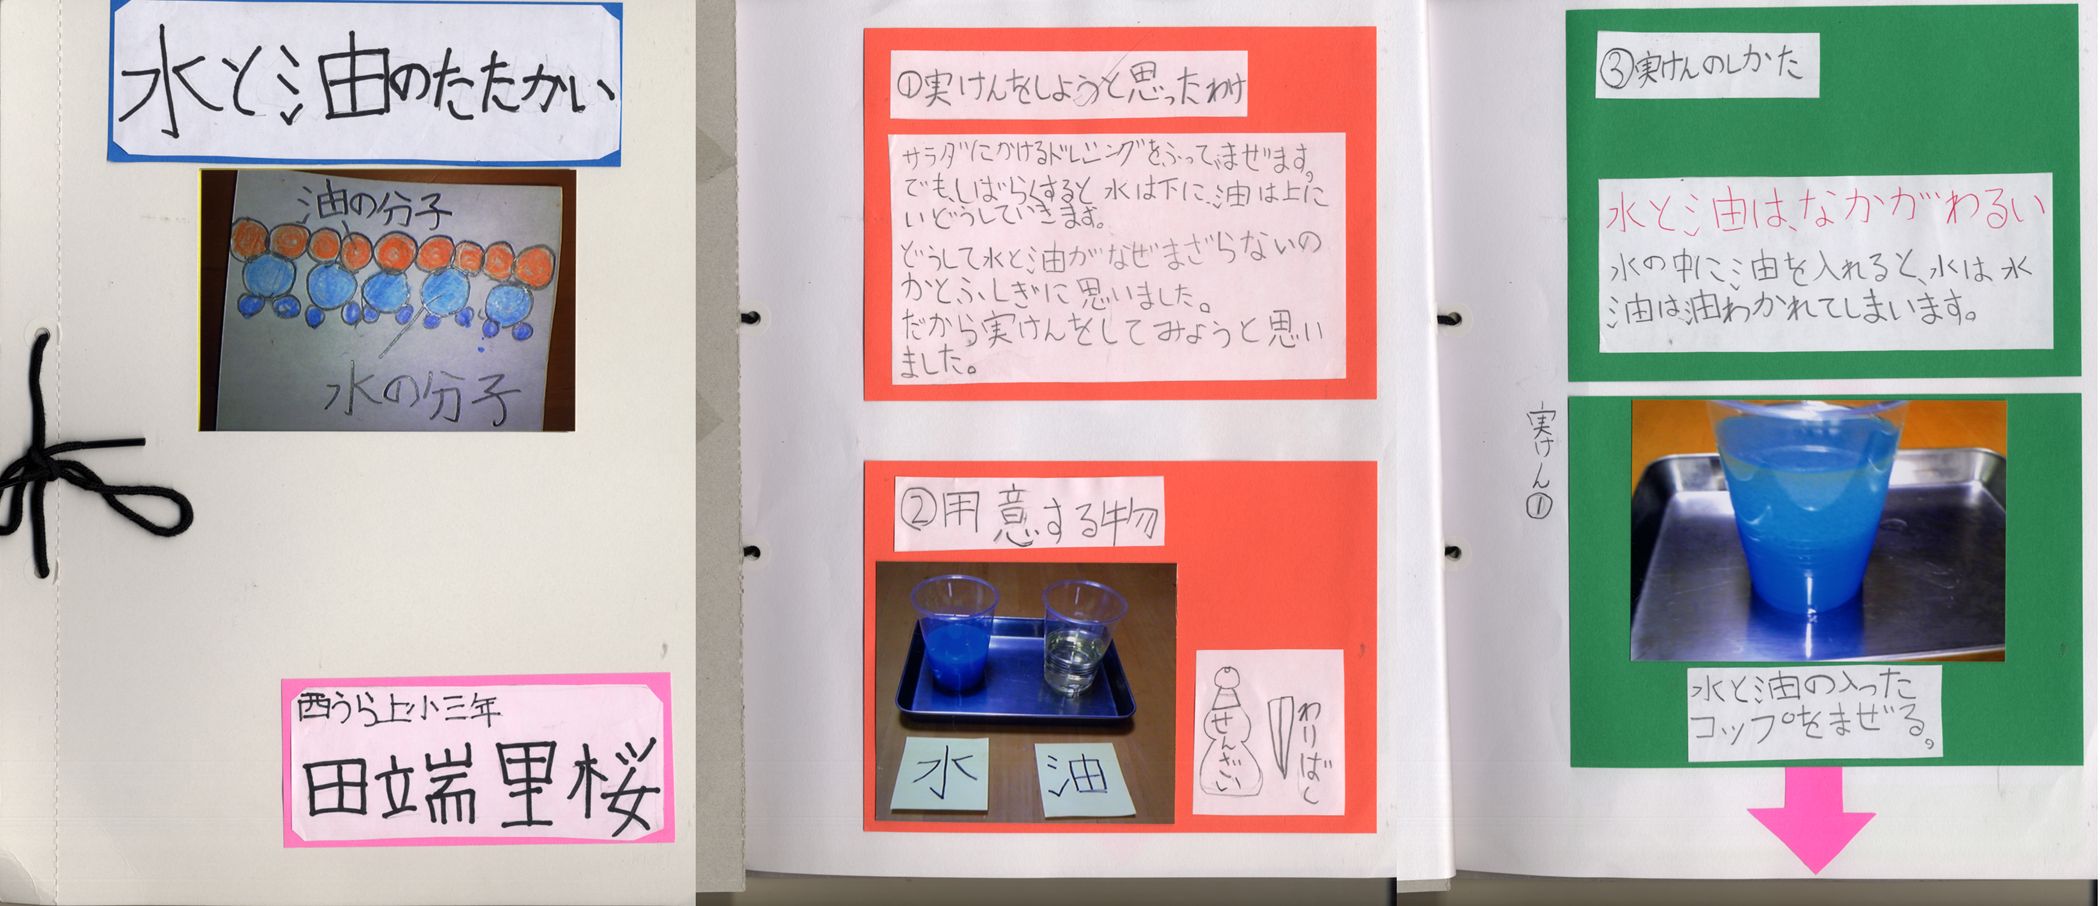 水と油のたたかい
油の分子
水の分子
西うら上小三年
田端里桜
①実けんをしようと思ったわけ
サラダにかけるドレシングをふってまぜます。
でも、しばらくすると水は下に、油は上に
いどうしていきます。
どうして水と油がなぜまざらないの
かとふしぎに思いました。
だから実けんをしてみようと思い
ました。
②用意する物
水
油
せんざい
わりばし
③実けんのしかた
水と油は、なかがわるい
水の中に油を入れると、水は水
油は油わかれてしまいます。
実けん①
水と油の入った
コップをまぜる。